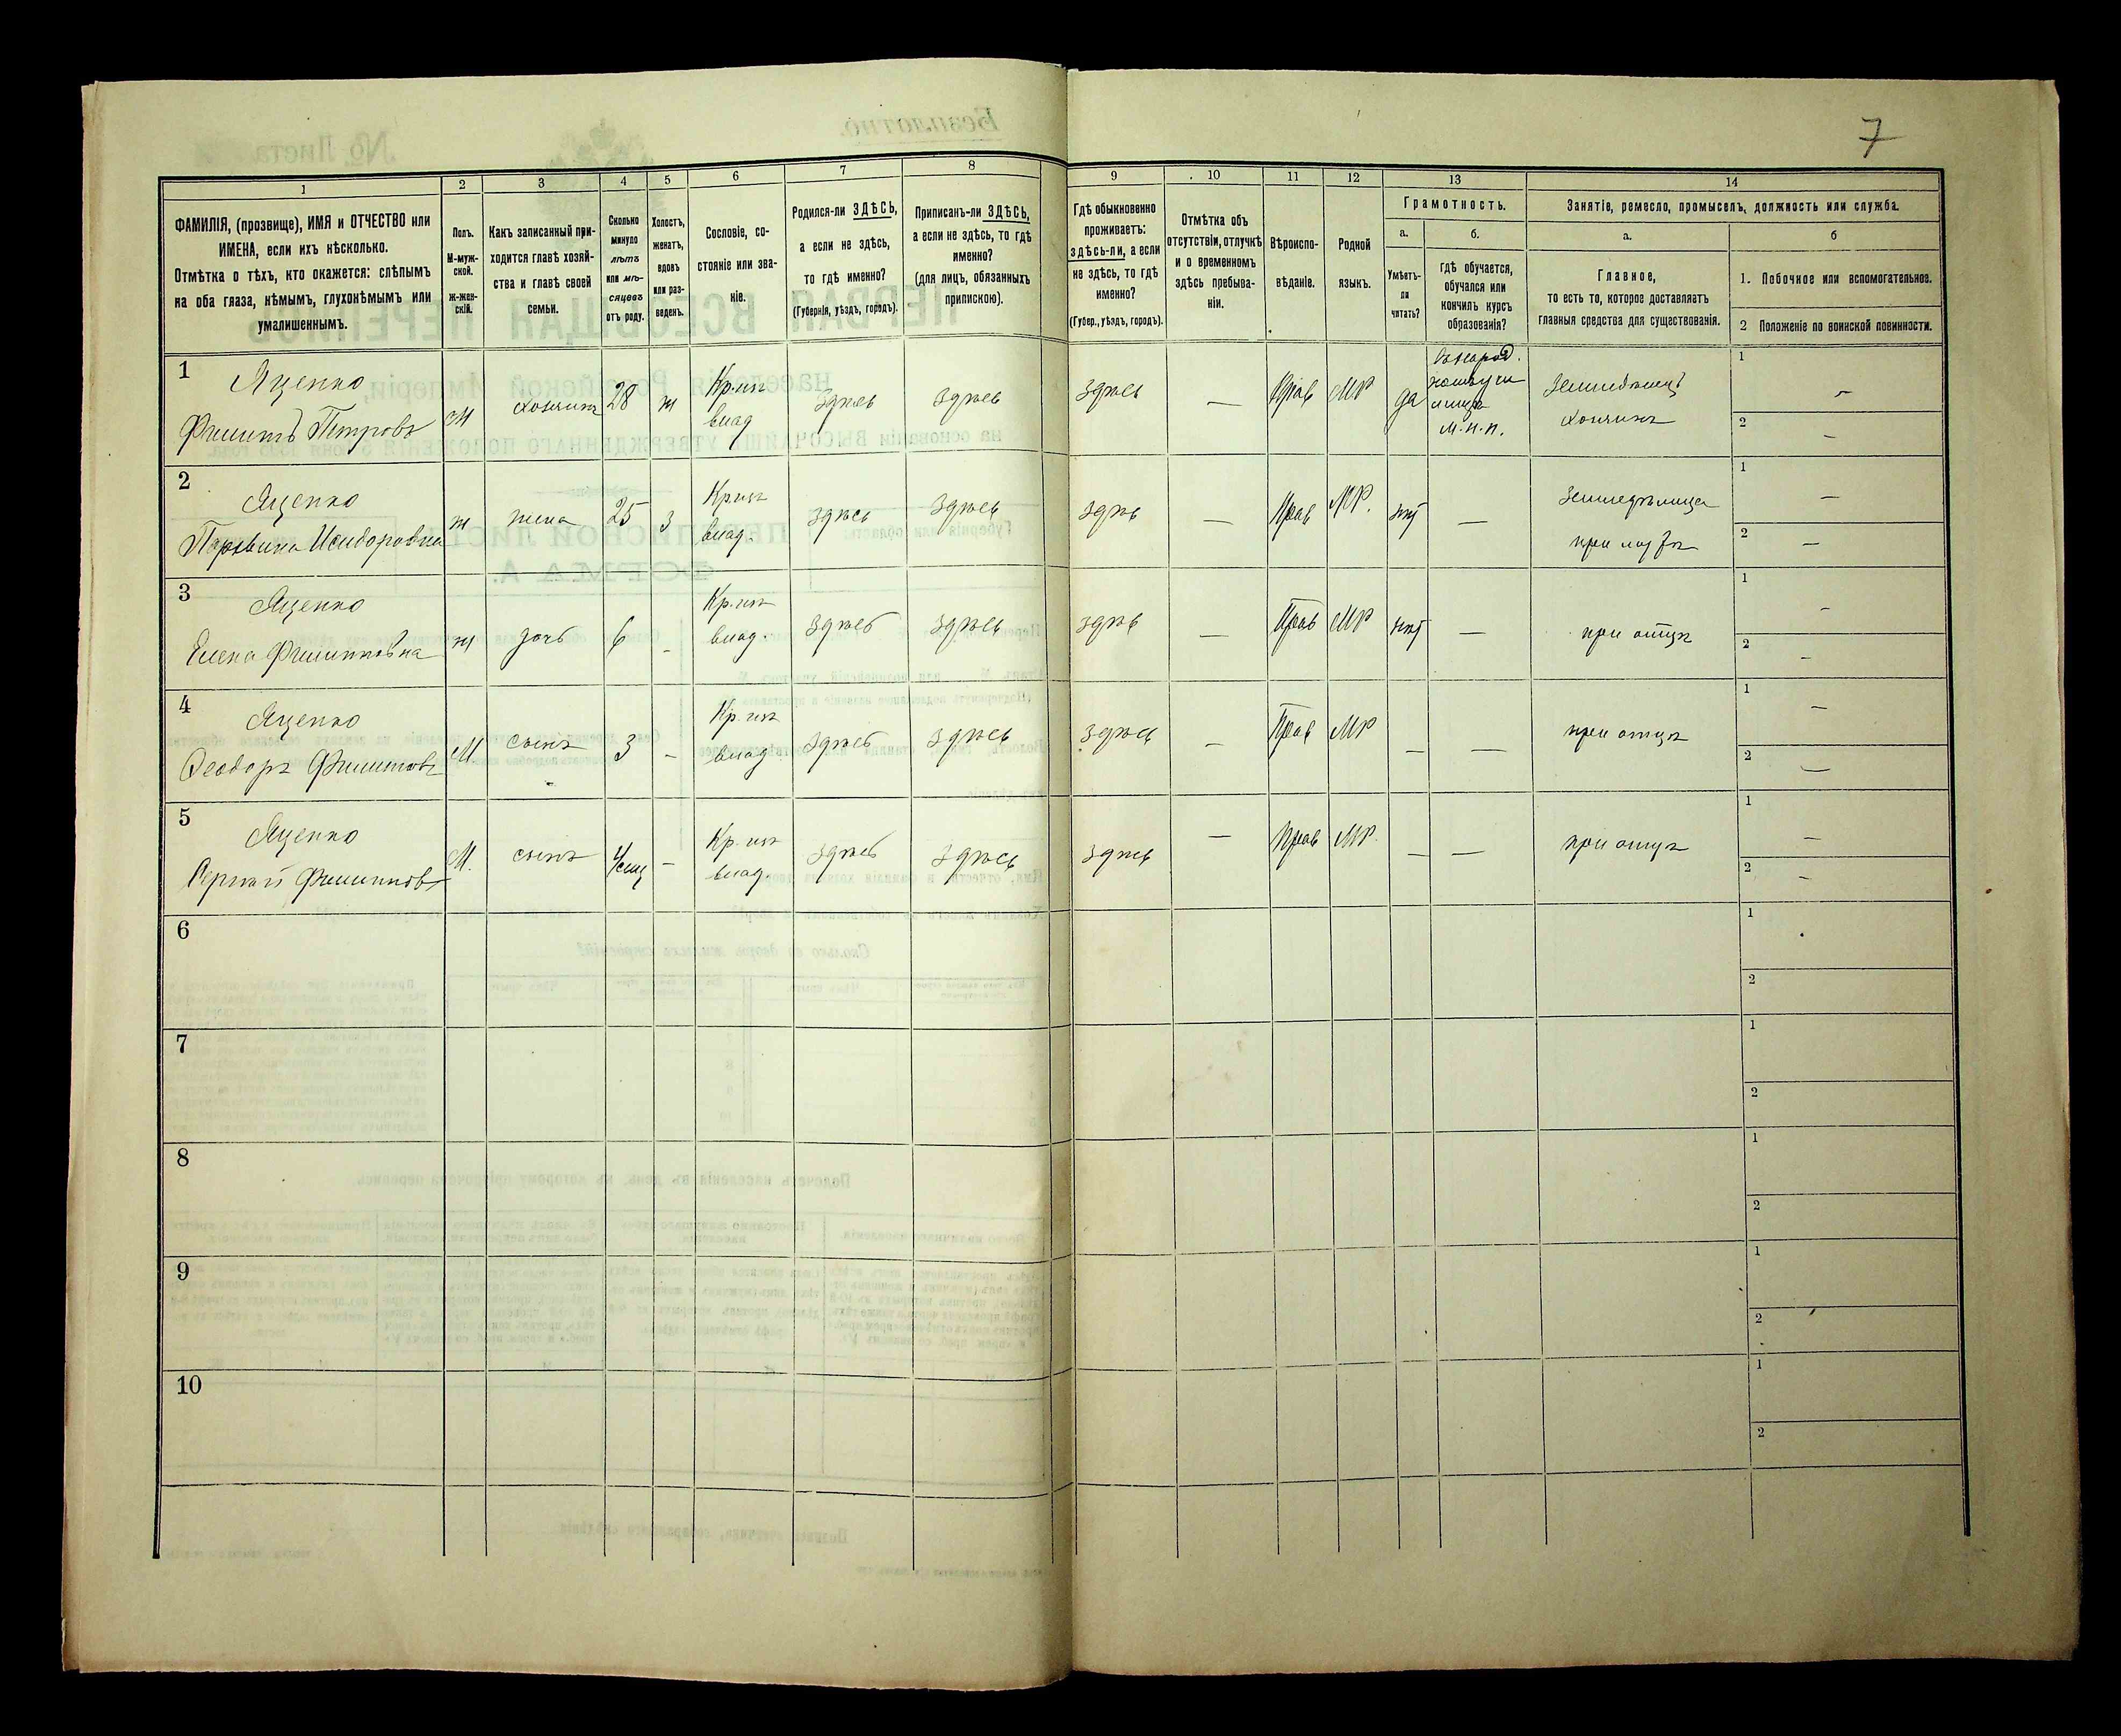 7
1 2 3 4 5 6 7 8 9 10 11 12 13 14
ФАМИЛІЯ, (прозвище), ИМЯ и ОТЧЕСТВО или
ИМЕНА, если ихъ нѣсколько.
Отмѣтка о тѣхъ, кто окажется: слѣпымъ
на оба глаза, нѣмымъ, глухонѣмымъ или
умалишеннымъ.
Полъ.
М-муж-
ской.
ж-жен-
скій.
Какъ записанный при-
ходится главѣ хозяй-
ства и главѣ своей
семьи.
Сколько
минуло
лѣтъ
или мѣ-
сяцевъ
отъ роду.
Холостъ,
женатъ,
вдовъ
или раз-
веденъ.
Сословіе, со-
стояніе или зва-
ніе.
Родился-ли ЗДѢСЬ,
а если не здѣсь,
то гдѣ именно?
(Губернія, уѣздъ, городъ).
Приписанъ-ли ЗДѢСЬ,
а если не здѣсь, то гдѣ
именно?
(для лицъ, обязанныхъ
припискою).
Гдѣ обыкновенно
проживаетъ:
здѣсь-ли, а если
не здѣсь, то гдѣ
именно?
(Губер., уѣздъ, городъ).
Отмѣтка объ
отсутствіи, отлучкѣ
и о временномъ
здѣсь пребыва-
ніи.
Вѣроиспо-
вѣданіе.
Родной
языкъ.
Грамотность.
а.
Умѣетъ-
ли
читать?
б.
Гдѣ обучается,
обучался или
кончилъ курсъ
образованія?
Занятіе, ремесло, промыселъ, должность или служба.
а.
Главное,
то есть то, которое доставляетъ
главныя средства для существованія.
б
1. Побочное или вспомогательное.
2 Положеніе по воинской повинности.
1 Яценко
Филипъ Петровъ
М хозяинъ 28 ж Кр.изъ влад здѣсь здѣсь здѣсь — Прав МР да
М.Н.П.
Земледѣлецъ
хозяинъ
1 —
2 —
2 Яценко
Исидоровна
ж жена 25 з Кр.изъ влад. здѣсь здѣсь здѣсь — Прав МР. нѣт —
Земледѣлица
при мужѣ
1 —
2 —
3 Яценко
Елена Филипповна
ж дочь 6 — Кр.изъ влад. здѣсь здѣсь здѣсь — Прав МР нѣт — при отцѣ
1 —
2 —
4 Яценко
Ѳеодоръ Филиповъ
М сынъ 3 — Кр.изъ влад здѣсь здѣсь здѣсь — Прав МР — — при отцѣ
1 —
2 —
5 Яценко
Сергѣй Филипповъ
М. сынъ — Кр.изъ влад. здѣсь здѣсь здѣсь — Прав МР. — — при отцѣ
1 —
2 —
6 1
2
7 1
2
8 1
2
9 1
2
10 1
2